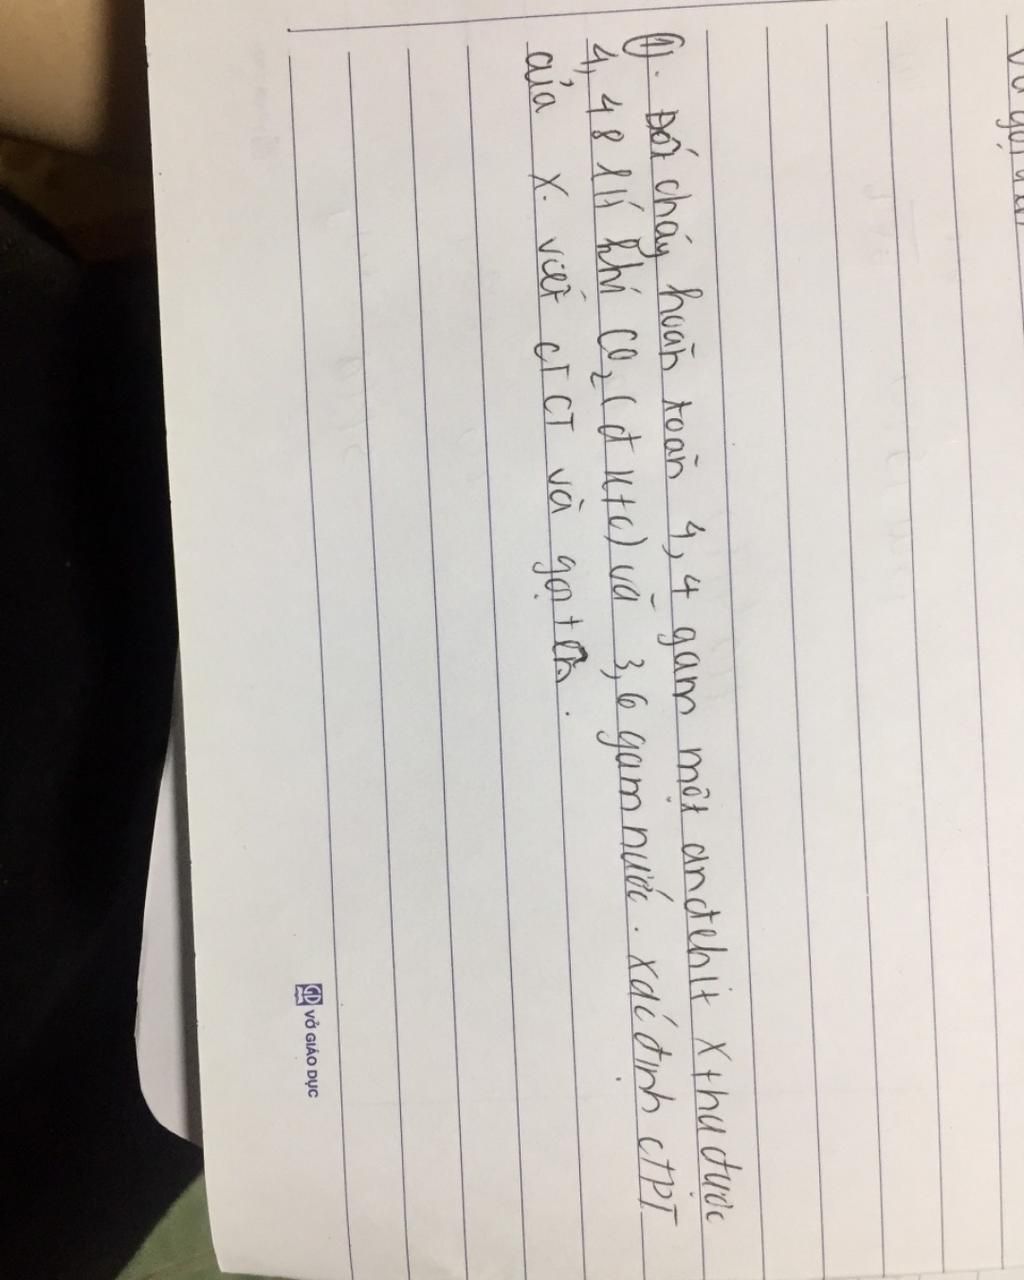 ①. Đốt cháy hoàn toàn 4,4 gam một anđehit X thu được
4,48 lít khí CO₂ (đktc) và 3,6 gam nước. xác định CTPT
của X. viết CTCT và gọi tên.
VỞ GIÁO DỤC